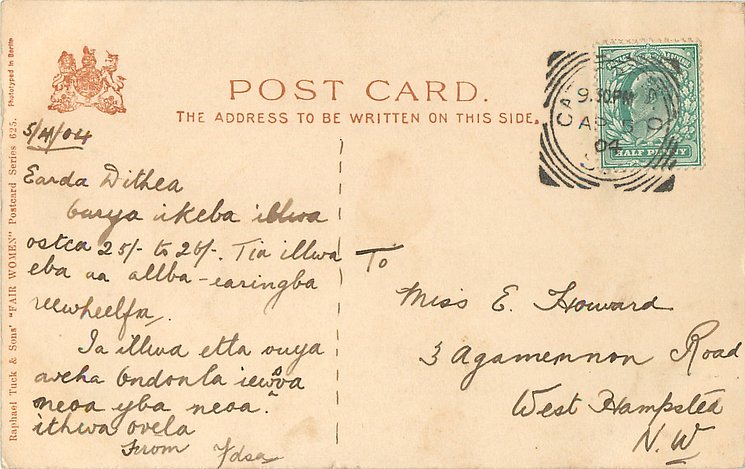 POST CARD.
THE ADDRESS TO BE WRITTEN ON THIS SIDE.
Raphael Tuck & Sons' "FAIR WOMEN" Postcard Series 625. Phototyped in Berlin
9.30PM
AP 5
04
HALF PENNY
5/4/04
Earda Dithea
ikeba illwa
ostca 25/- to 26/-. Tia illwa
eba aa allba-earingba
reewheelfa.
Ia illwa etta ouya
aveha ondonla iewva
neoa yba neoa.
ithwa ovela
From
To
Miss E. Howard
3 Agamemnon Road
West Hampsted
N.W